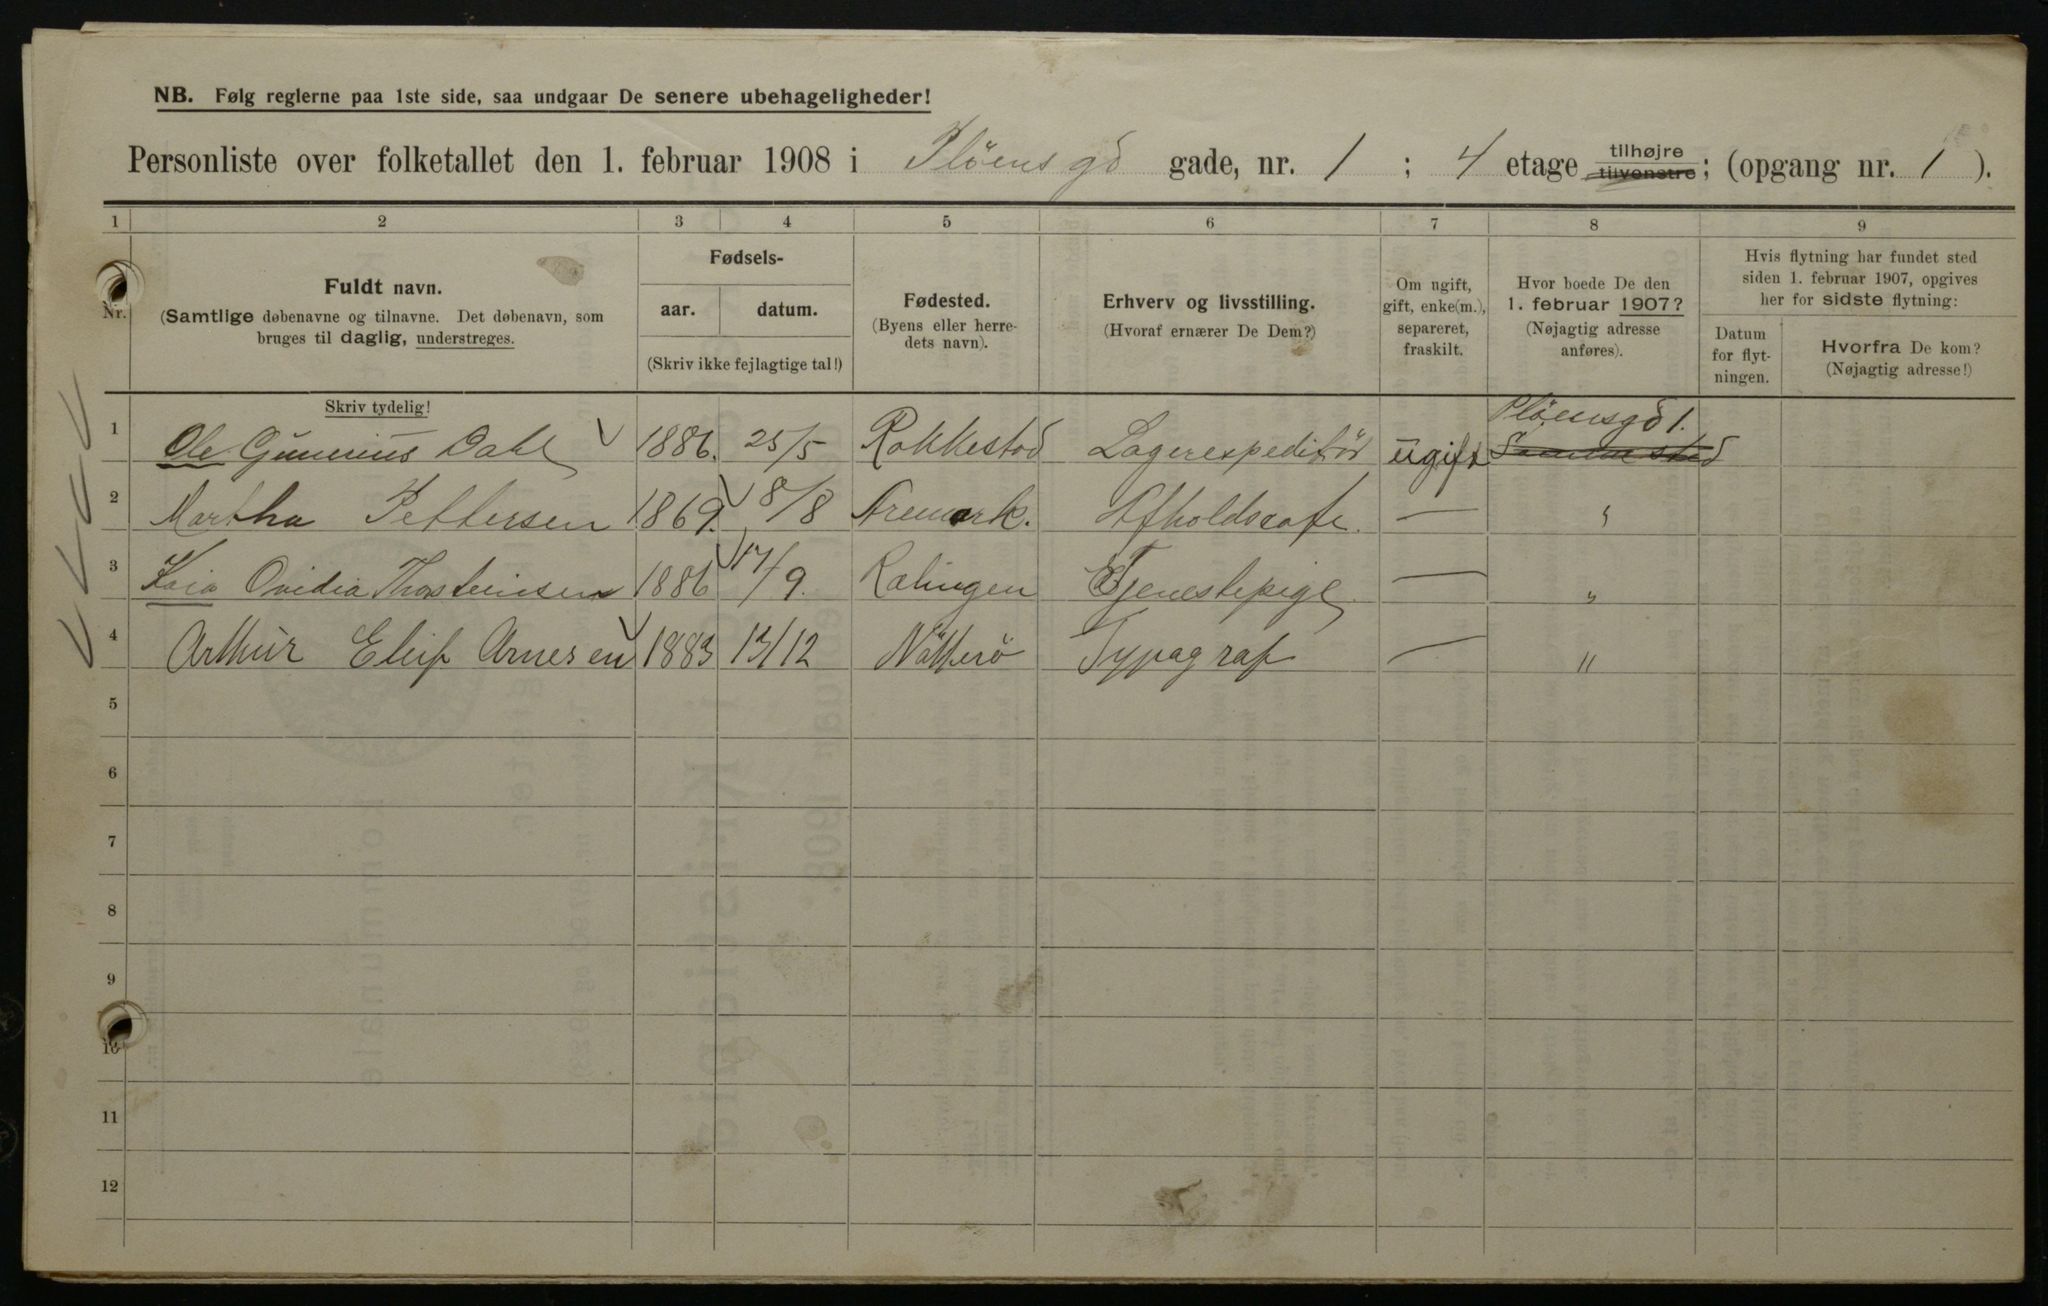 NB. Følg reglerne paa 1ste side, saa undgaar De senere ubehageligheder!
Personliste over folketallet den 1. februar 1908 i Pløensgd gade, nr. 1 ; 4 etage tilhøjre tilvenstre; (opgang nr. 1 ).
1 2 3 4 5 6 7 8 9
Nr.
Fuldt navn.
(Samtlige døbenavne og tilnavne. Det døbenavn, som
bruges til daglig, understreges.
Skriv tydelig!
Fødsels-
aar. datum.
(Skriv ikke fejlagtige tal!)
Fødested.
(Byens eller herre-
dets navn).
Erhverv og livsstilling.
(Hvoraf ernærer De Dem?)
Om ugift,
gift, enke(m.),
separeret,
fraskilt.
Hvor boede De den
1. februar 1907?
(Nøjagtig adresse
anføres).
Hvis flytning har fundet sted
siden 1. februar 1907, opgives
her for sidste flytning:
Datum
for flyt-
ningen.
Hvorfra De kom?
(Nøjagtig adresse!)
Pløensgd 1.
1 Ole Gunerius Dahl 1886. 25/5 Rokkestad Lagerexpeditør ugift Samme sted
2 Martha Pettersen 1869. 18/8 Aremark. Afholdscafe. — "
3 Kaia Ovidia Thosteinsen 1886 17/9. Rælingen Tjenestepige — "
4 Arthur Eleif Arnesen 1883 13/12 Nøtterö Typograf — "
5
6
7
8
9
10
11
12